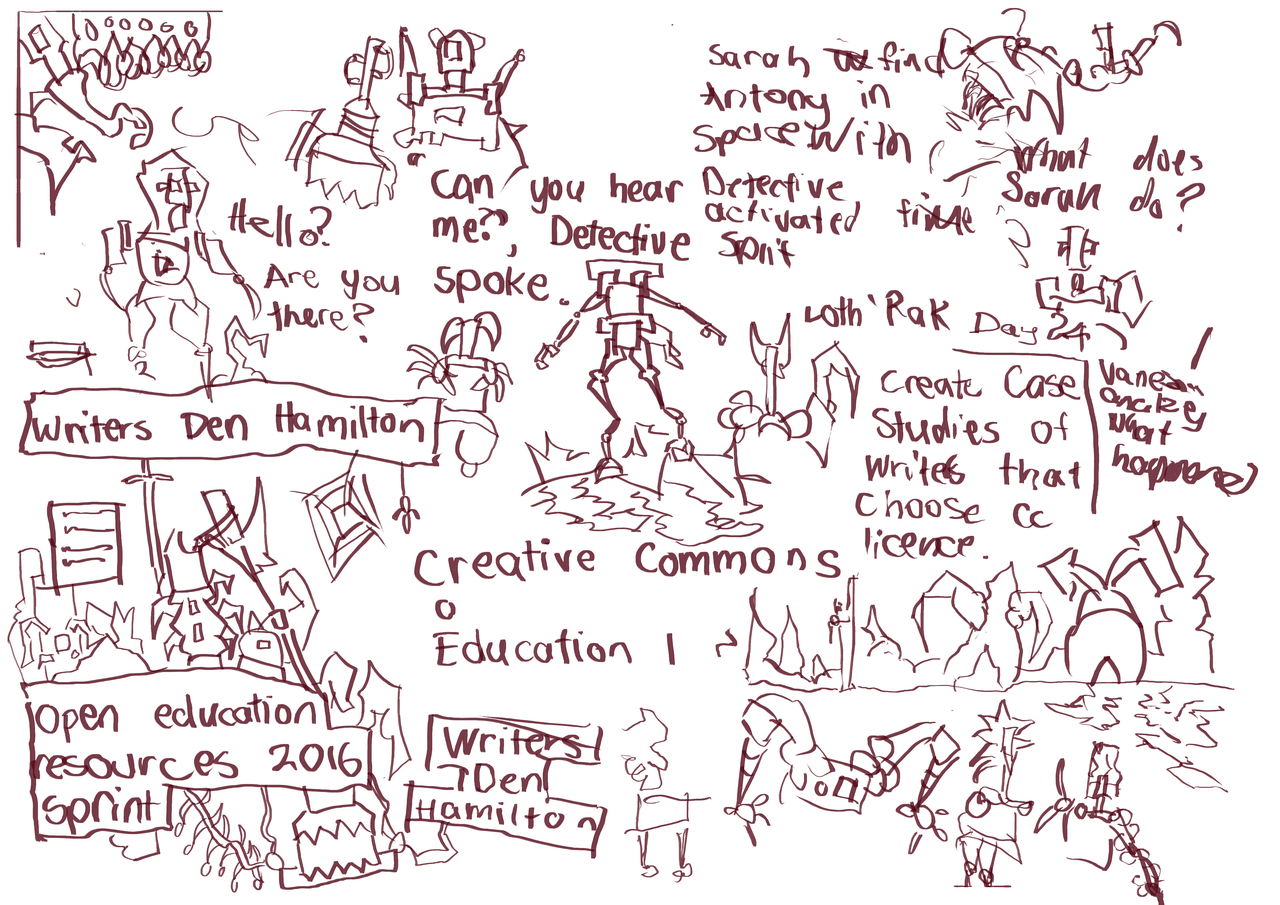 Hello?
Are you
there?
"Can you hear
me?", Detective
Spoke.
Sarah find
Antony in
Space With
Detective
activated
Split
What does
Sarah do?
Loth'Rak Day 24
Create Case
Studies of
writes that
Choose cc
licence.
what
happened
Writers Den Hamilton
Creative Commons
o
Education 1
Open education
resources 2016
Sprint
Writers
Den
Hamilton